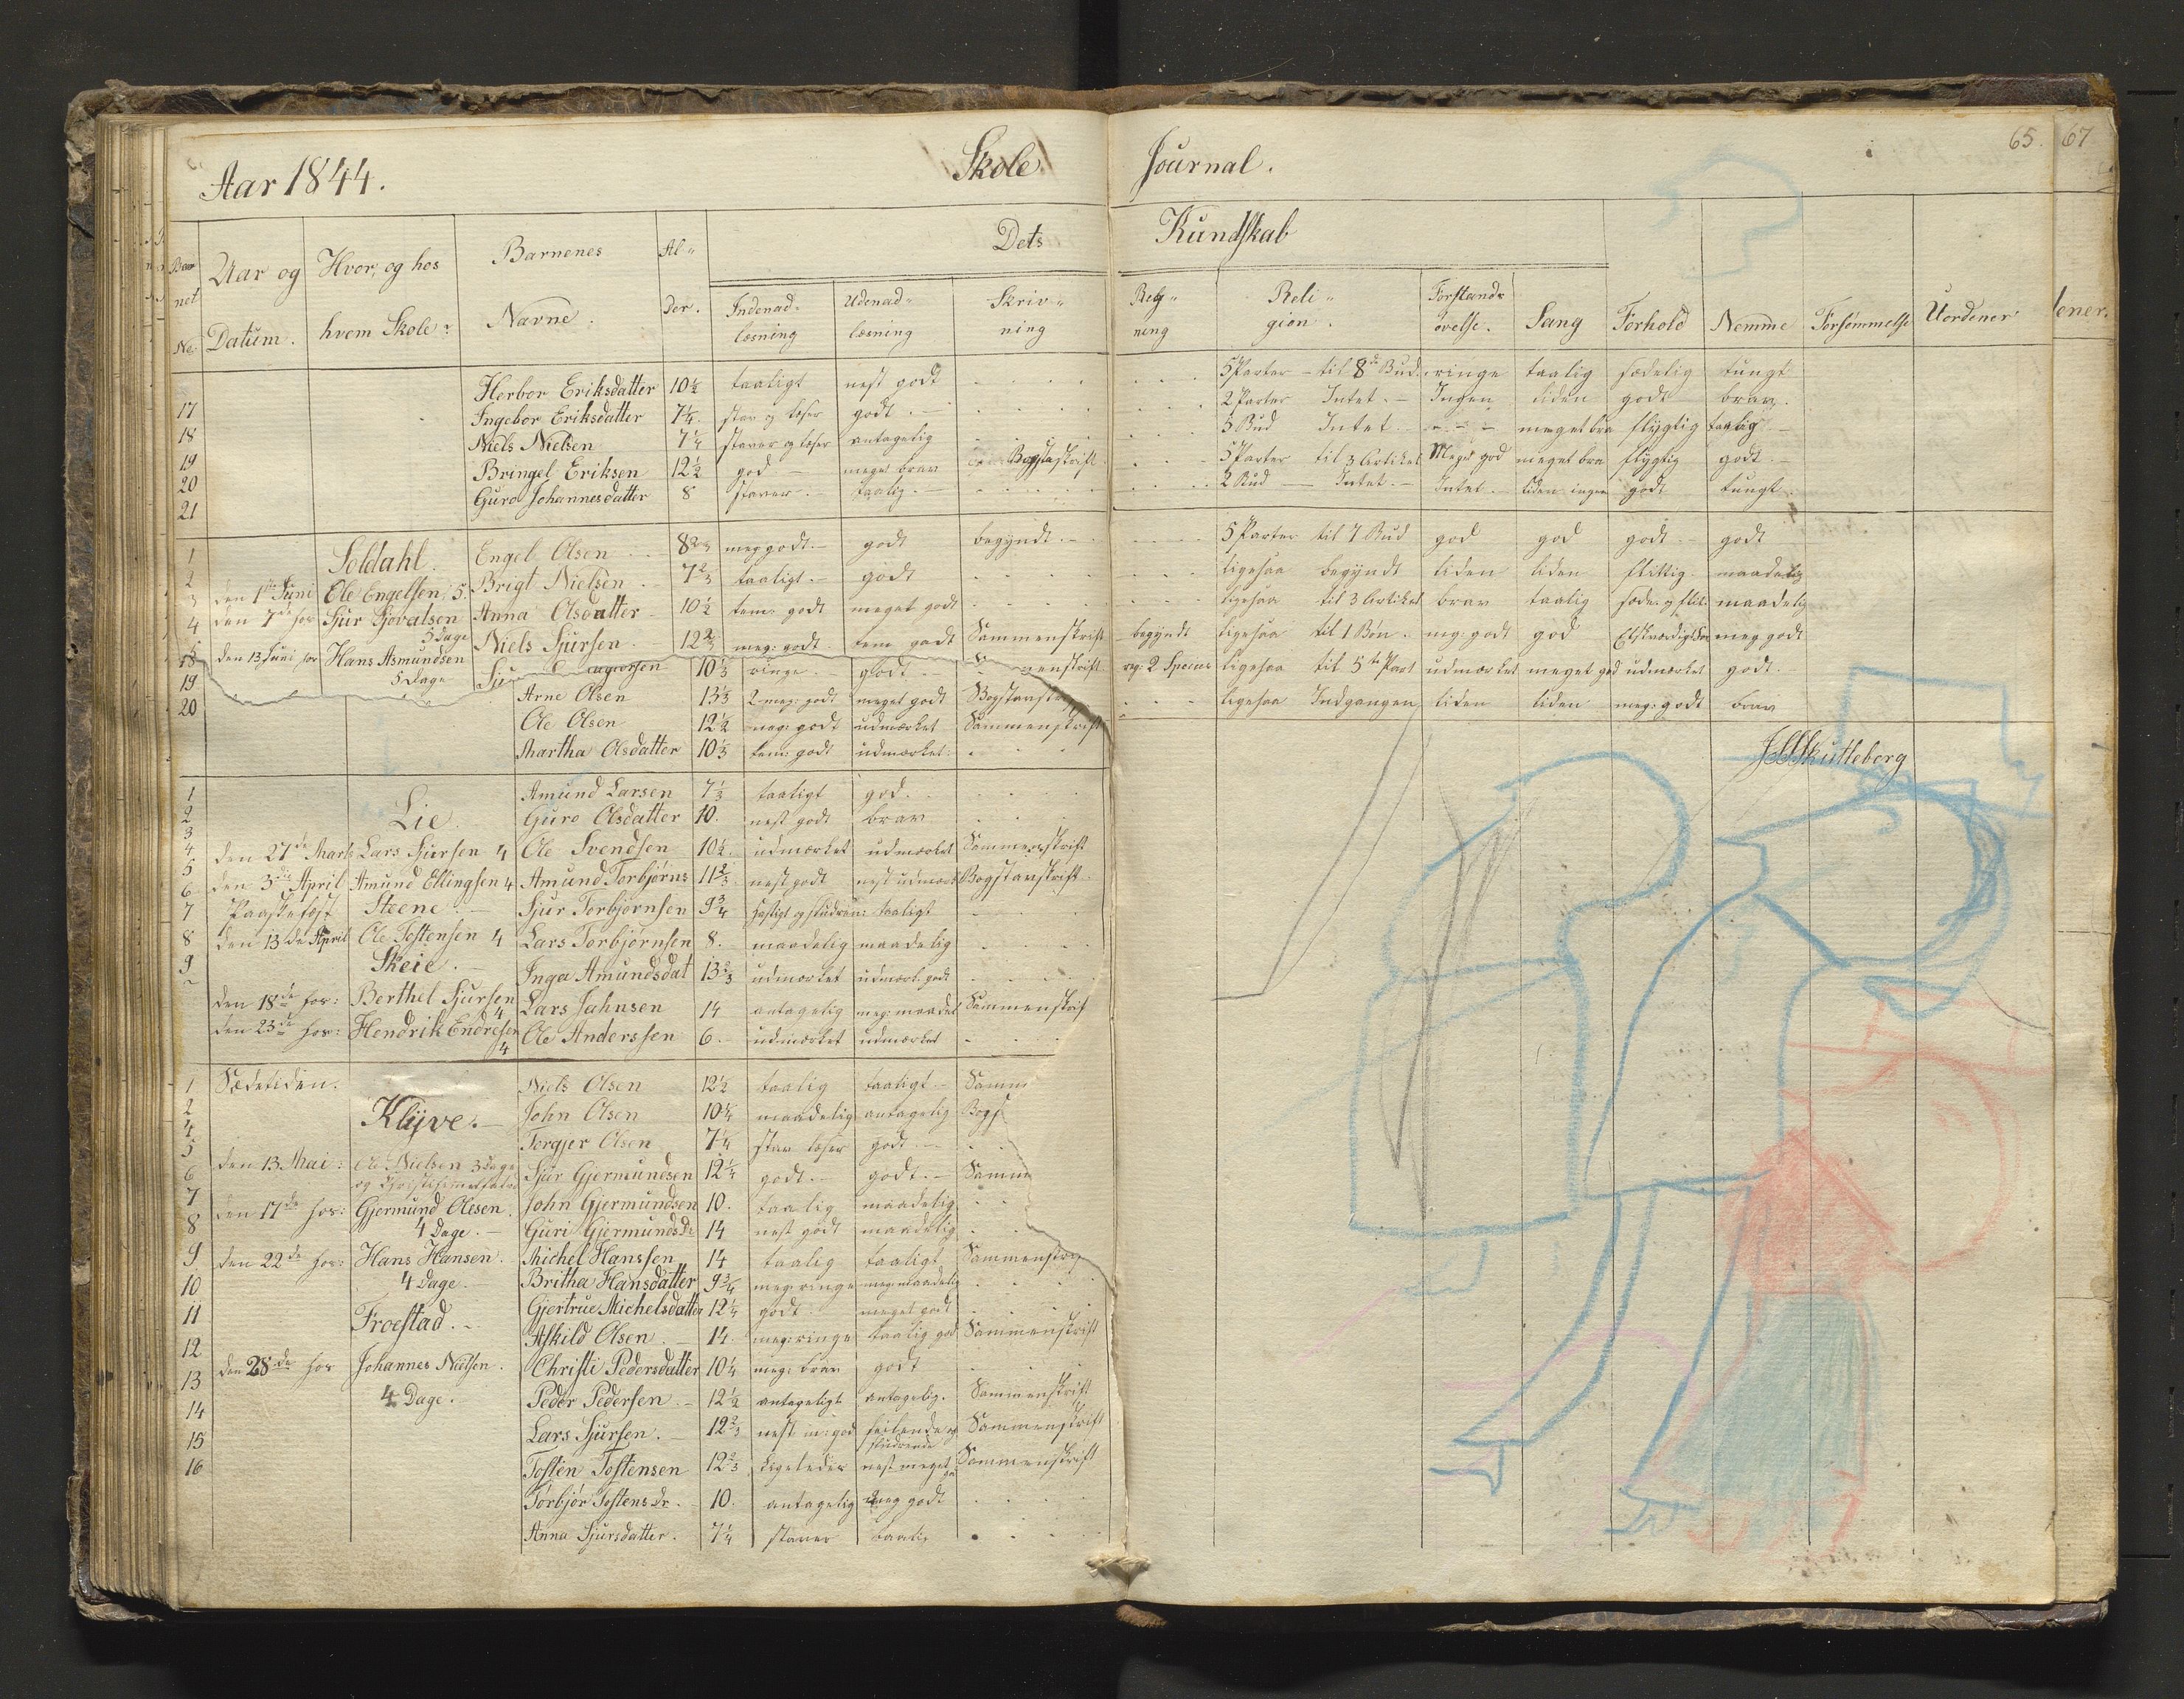 65. 67
Aar 1844. Skole Journal.
Dets Kundskab
Barnet No. Aar og Datum. Hvor, og hos hvem Skole: Barnenes Navne. Alder. Indenadlæsning Udenadlæsning Skrivning Regning Religion. Forstandsøvelse. Sang Forhold Nemme Forsømmelse Uordener
Herbor Eriksdatter 10½ taaligt nest godt 5 Parter - til 8de Bud. ringe taalig sædelig tungt
17 Ingebor Eriksdatter 7¼ stav og læser godt. 2 Parter Intet. - Ingen liden godt brav.
18 Niels Nielsen 7¼ staver og læser antagelig 3 Bud Intet meget bra flygtig taalig
19 Bringel Eriksen 12½ god meget brav Bogstavskrift 5 Parter til 3 Artikel Meget god meget bra flygtig godt
20 Guro Johannesdatter 8 staver. - taalig. 2 Bud - Intet. - Intet. - liden ingen godt tungt
21
1 Soldahl. Engel Olsen 8⅔ meg godt. - godt begyndt. 5 Parter til 7 Bud god god godt godt
2 den 1ste Juni Ole Engelsen, 5. Brigt Nielsen 7⅔ taaligt. - godt ligesaa begyndt liden liden flittig maadelig
3 den 7de hos Sjur Sjovatsen 5 Dage Anna Olsdatter 10½ tem: godt meget godt ligesaa til 3 Artikel brav taalig sæde. og flit. maadelig
4 Niels Sjursen 12⅔ meg: godt. tem godt Sammenskrift begyndt ligesaa til 1 Bøn. mg: godt god meg godt
den 13 Juni hos Hans Asmundsen 5 Dage 10⅓ ringe. godt. reg: 2 Species ligesaa til 5te Part udmærket meget god udmærket godt
18
19 Arne Olsen 13⅓ 2 meg: godt meget godt Bogstavskr ligesaa Indgangen liden liden meg: godt brav
20 Ole Olsen 12½ meg: godt udmærket Sammenskrift
Martha Olsdatter 10⅓ tem: godt udmærket.
JSSkutleberg
1 Amund Larsen 7⅓ taaligt god.
2 Lie. Guro Olsdatter 10. nest godt brav
3
4 den 27de Marts Lars Sjursen 4 Ole Svendsen 10½. udmærket udmærket Sammenskrift
5 den 3die April Amund Ellingsen 4 Amund Torbjørns 11⅔ nest godt nest udmærk Bogstavskrift
6 Paaskefest Steene. Sjur Torbjørnsen 9¾ taaligt
7 den 13de April Ole Tostensen 4 Lars Torbjørnsen 8. maadelig maadelig
8 Skeie. Inga Amundsdat 13⅔ udmærket udmærk. godt
9 den 18de hos: Berthel Sjursen 4 Lars Jahnsen 14 antagelig meg: maadel Sammenskrif
den 23de hos: Hendrik Endresen 4 Ole Anderssen 6. udmærket udmærket
1 Sædetiden. Niels Olsen 12½ taalig taaligt. Samm
2 Klyve. John Olsen 10¾ maadelig antagelig Bogs
4 Torgjer Olsen 7¼ stav læser godt.
5 den 13 Mai: Ole Nielsen 3 Dage og Christihimmelfart Sjur Gjermundsen 12¼ godt. godt. Samm
6
7 den 17de hos: Gjermund Olesen. John Gjermundsen 10. taalig maadelig
8 4 Dage. Guri Gjermundsdr 14 nest godt maadelig
9 den 22de hos: Hans Hansen. Michel Hanssen 14 taalig taaligt Sammenskr
10 4 Dage. Britha Hansdatter 9¾ meg: ringe meg: maadelig
11 Gjertrue Michelsdatter 12¼ godt meget godt
Froestad. Askild Olsen. 14. meg: ringe taalig god Sammenskrift
12 den 28de hos Johannes Nielsen. Christi Pedersdatter 10¼ meg: brav godt
13 4 Dage. Peder Pedersen 12½ antageligt antagelig. Sammenskrift
14 Lars Sjursen. 12⅔ nest m: god feilende og studrende Sammenskrift
15
16 Tosten Tostensen 12⅔ Ligeledes nest meget Sammenskrift
Torbjør Tostensdr. 10. antagelig meg godt
Anna Sjursdatter. 7¼ staver taalig